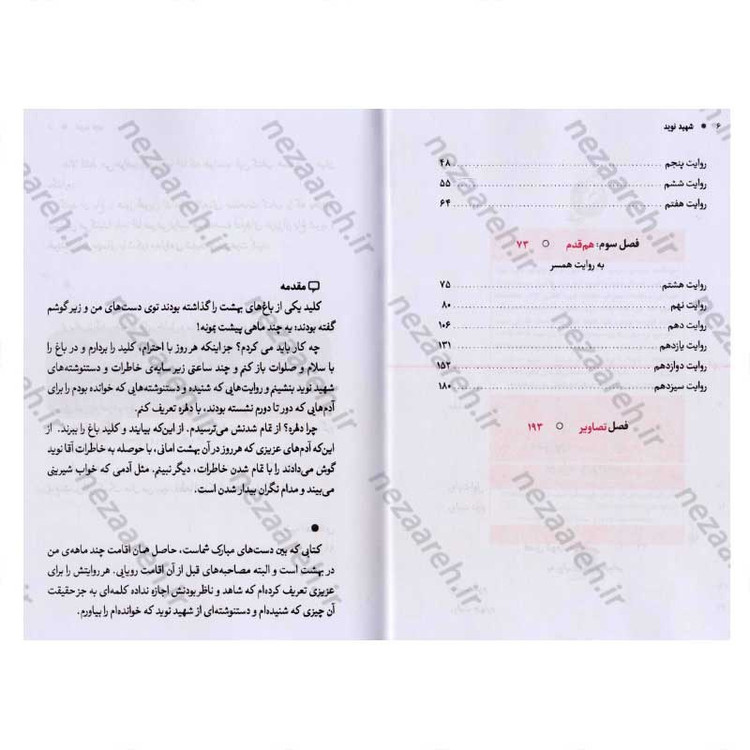 ۶ ● شهید نوید
روایت پنجم ۴۸
روایت ششم ۵۵
روایت هفتم ۶۴
فصل سوم: هم‌قدم ○ ۷۳
به روایت همسر
روایت هشتم ۷۵
روایت نهم ۸۰
روایت دهم ۱۰۶
روایت یازدهم ۱۳۱
روایت دوازدهم ۱۵۲
روایت سیزدهم ۱۸۰
فصل تصاویر ○ ۱۹۳
مقدمه
کلید یکی از باغ‌های بهشت را گذاشته بودند توی دست‌های من و زیر گوشم
گفته بودند: یه چند ماهی پیشت بمونه!
چه کار باید می کردم؟ جز اینکه هر روز با احترام، کلید را بردارم و در باغ را
با سلام و صلوات باز کنم و چند ساعتی زیر سایه‌ی خاطرات و دستنوشته‌های
شهید نوید بنشینم و روایت‌هایی که شنیده و دستنوشته‌هایی که خوانده بودم را برای
آدم‌هایی که دور تا دورم نشسته بودند، با دلهره تعریف کنم.
چرا دلهره؟ از تمام شدنش می‌ترسیدم. از این‌که بیایند و کلید باغ را ببرند. از
این‌که آدم‌های عزیزی که هر روز در آن بهشت امانی، با حوصله به خاطرات آقا نوید
گوش می‌دادند را با تمام شدن خاطرات، دیگر نبینم. مثل آدمی که خواب شیرینی
می‌بیند و مدام نگران بیدار شدن است.
●
کتابی که بین دست‌های مبارک شماست، حاصل همان اقامت چند ماهه‌ی من
در بهشت است و البته مصاحبه‌های قبل از آن اقامت رویایی. هر روایتش را برای
عزیزی تعریف کرده‌ام که شاهد و ناظر بودنش اجازه نداده کلمه‌ای به جز حقیقت
آن چیزی که شنیده‌ام و دستنوشته‌ای از شهید نوید که خوانده‌ام را بیاورم.
nezaareh.ir